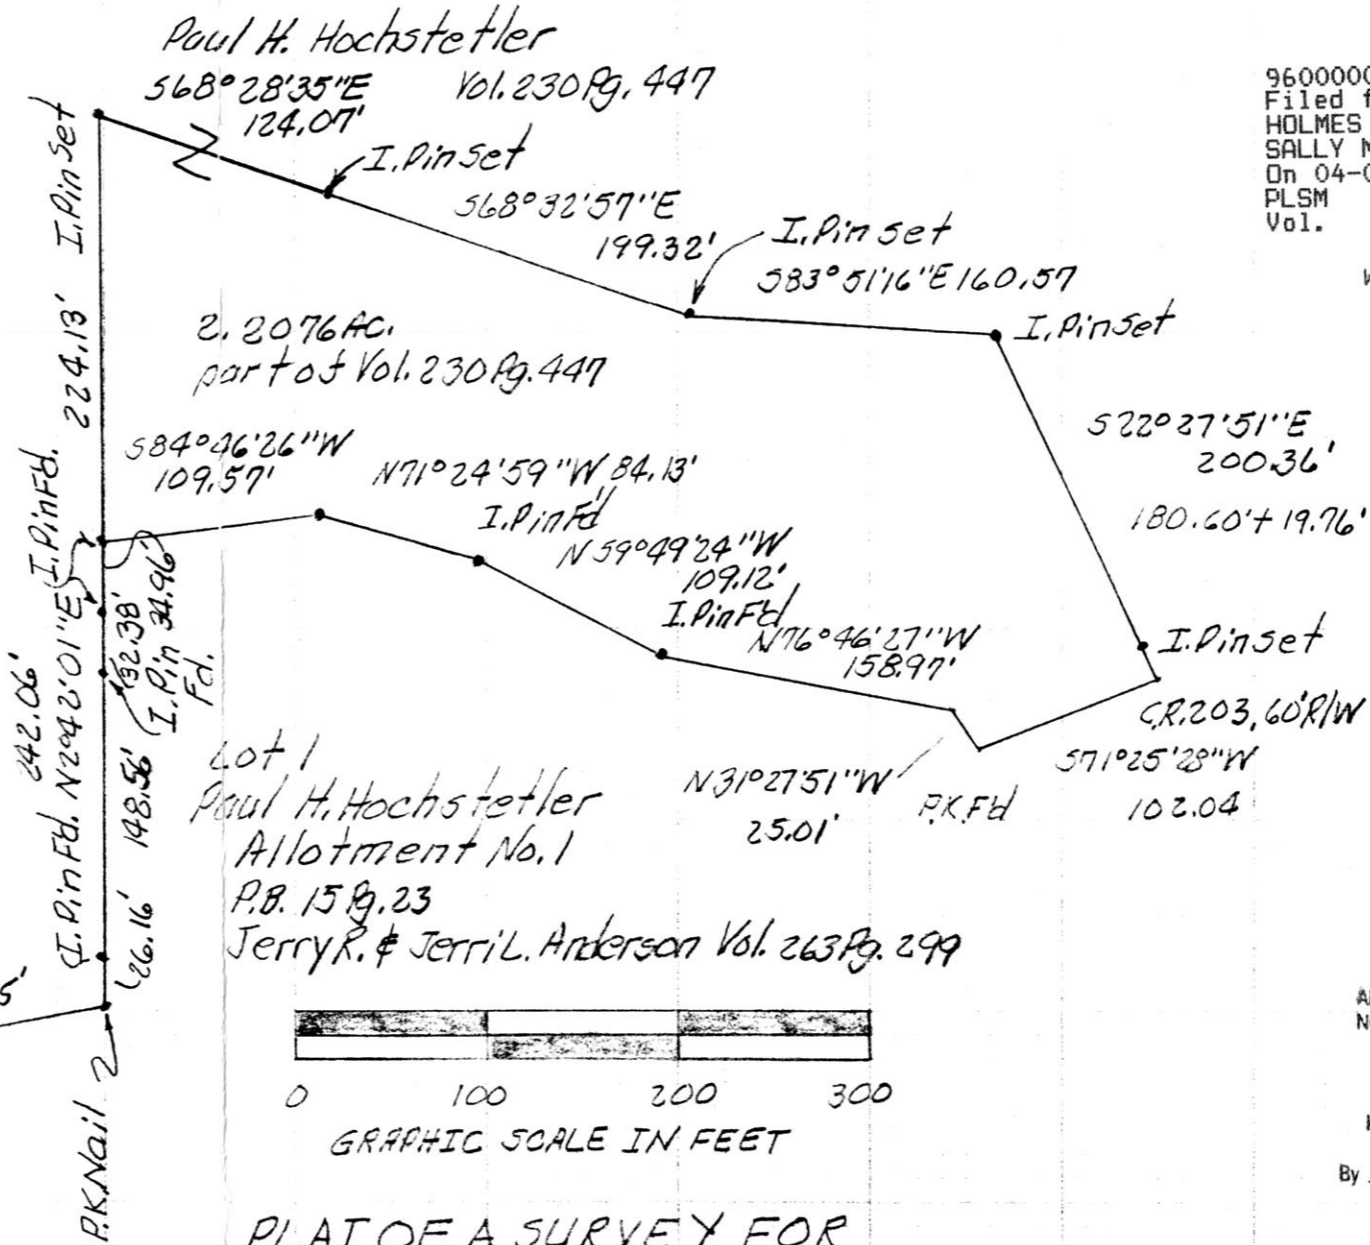 Paul H. Hochstetler
S68°28'35"E
124.07'
Vol. 230 Pg. 447
I. Pin Set
I. Pin Set
S68°32'57"E
199.32'
I. Pin set
S83°51'16"E 160.57
I. Pin Set
9600000
Filed f
HOLMES
SALLY M
On 04-0
PLSM
Vol.
224.13'
2.2076 AC.
part of Vol. 230 Pg. 447
S84°46'26"W
109.57'
N71°24'59"W 84.13'
I. Pin Fd
N59°49'24"W
109.12'
I. Pin Fd
N76°46'27"W
158.97'
S22°27'51"E
200.36'
180.60'+19.76'
I. Pin set
C.R. 203, 60' R/W
S71°25'28"W
102.04
N31°27'51"W
25.01'
P.K. Fd
I. Pin Fd.
242.06'
I. Pin Fd. N2°42'01"E
32.38'
34.96'
I. Pin
Fd.
148.56'
26.16'
5'
P.K. Nail
Lot 1
Paul H. Hochstetler
Allotment No. 1
P.B. 15 Pg. 23
Jerry R. & Jerri L. Anderson Vol. 263 Pg. 299
0 100 200 300
GRAPHIC SCALE IN FEET
PLAT OF A SURVEY FOR
By